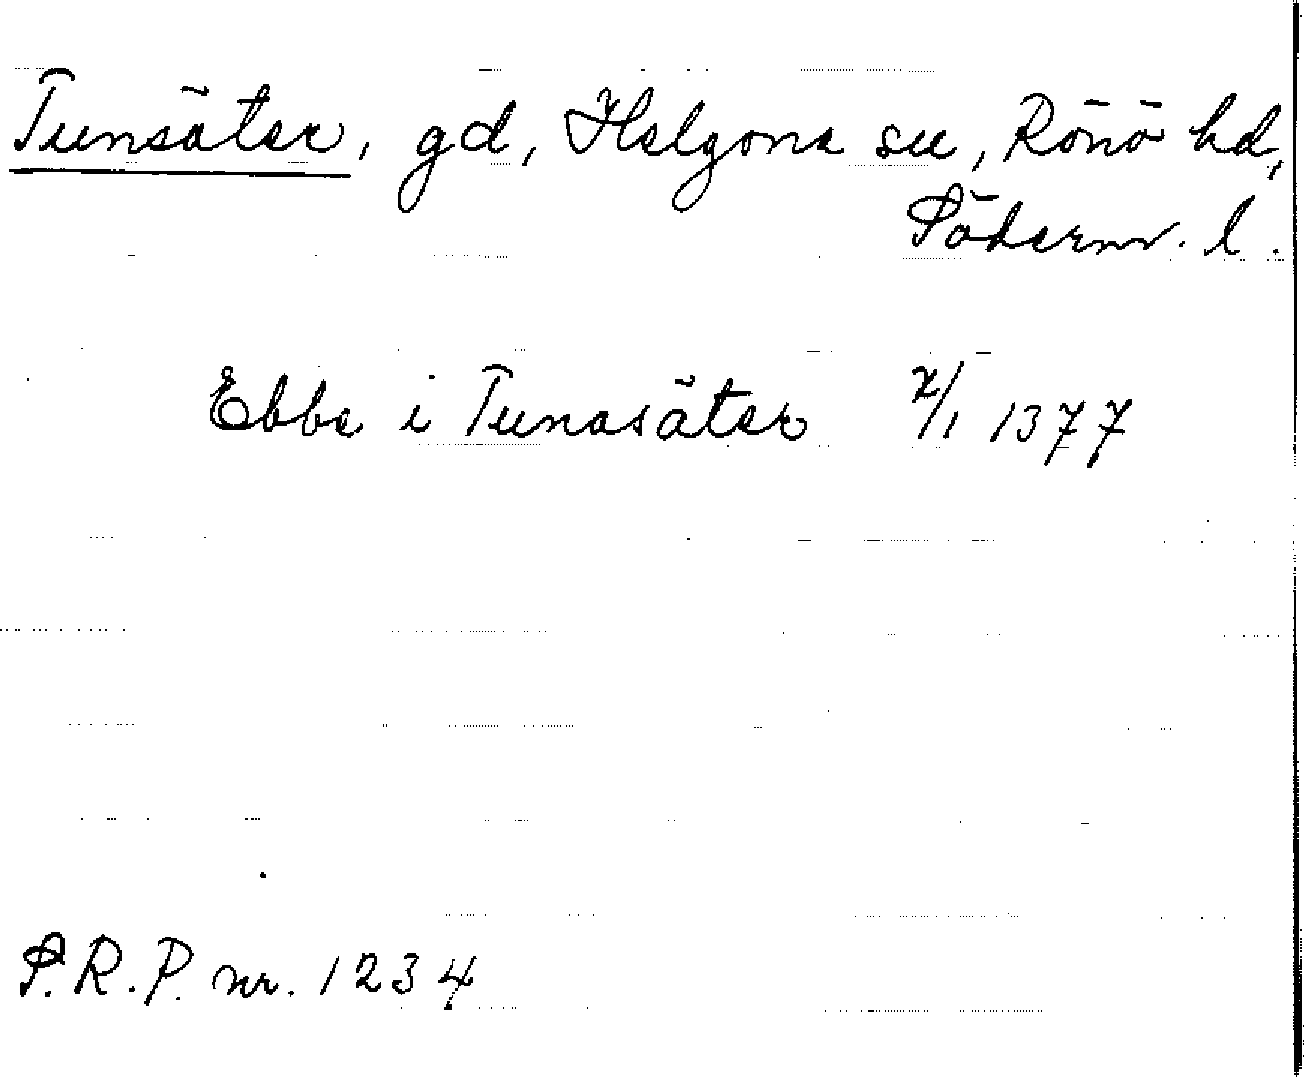 Tunsäter, gd, Helgona sn, Rönö hd,
Söderm. l.
Ebbe i Tunasäter 7/1 1377
S.R.P. nr. 1234